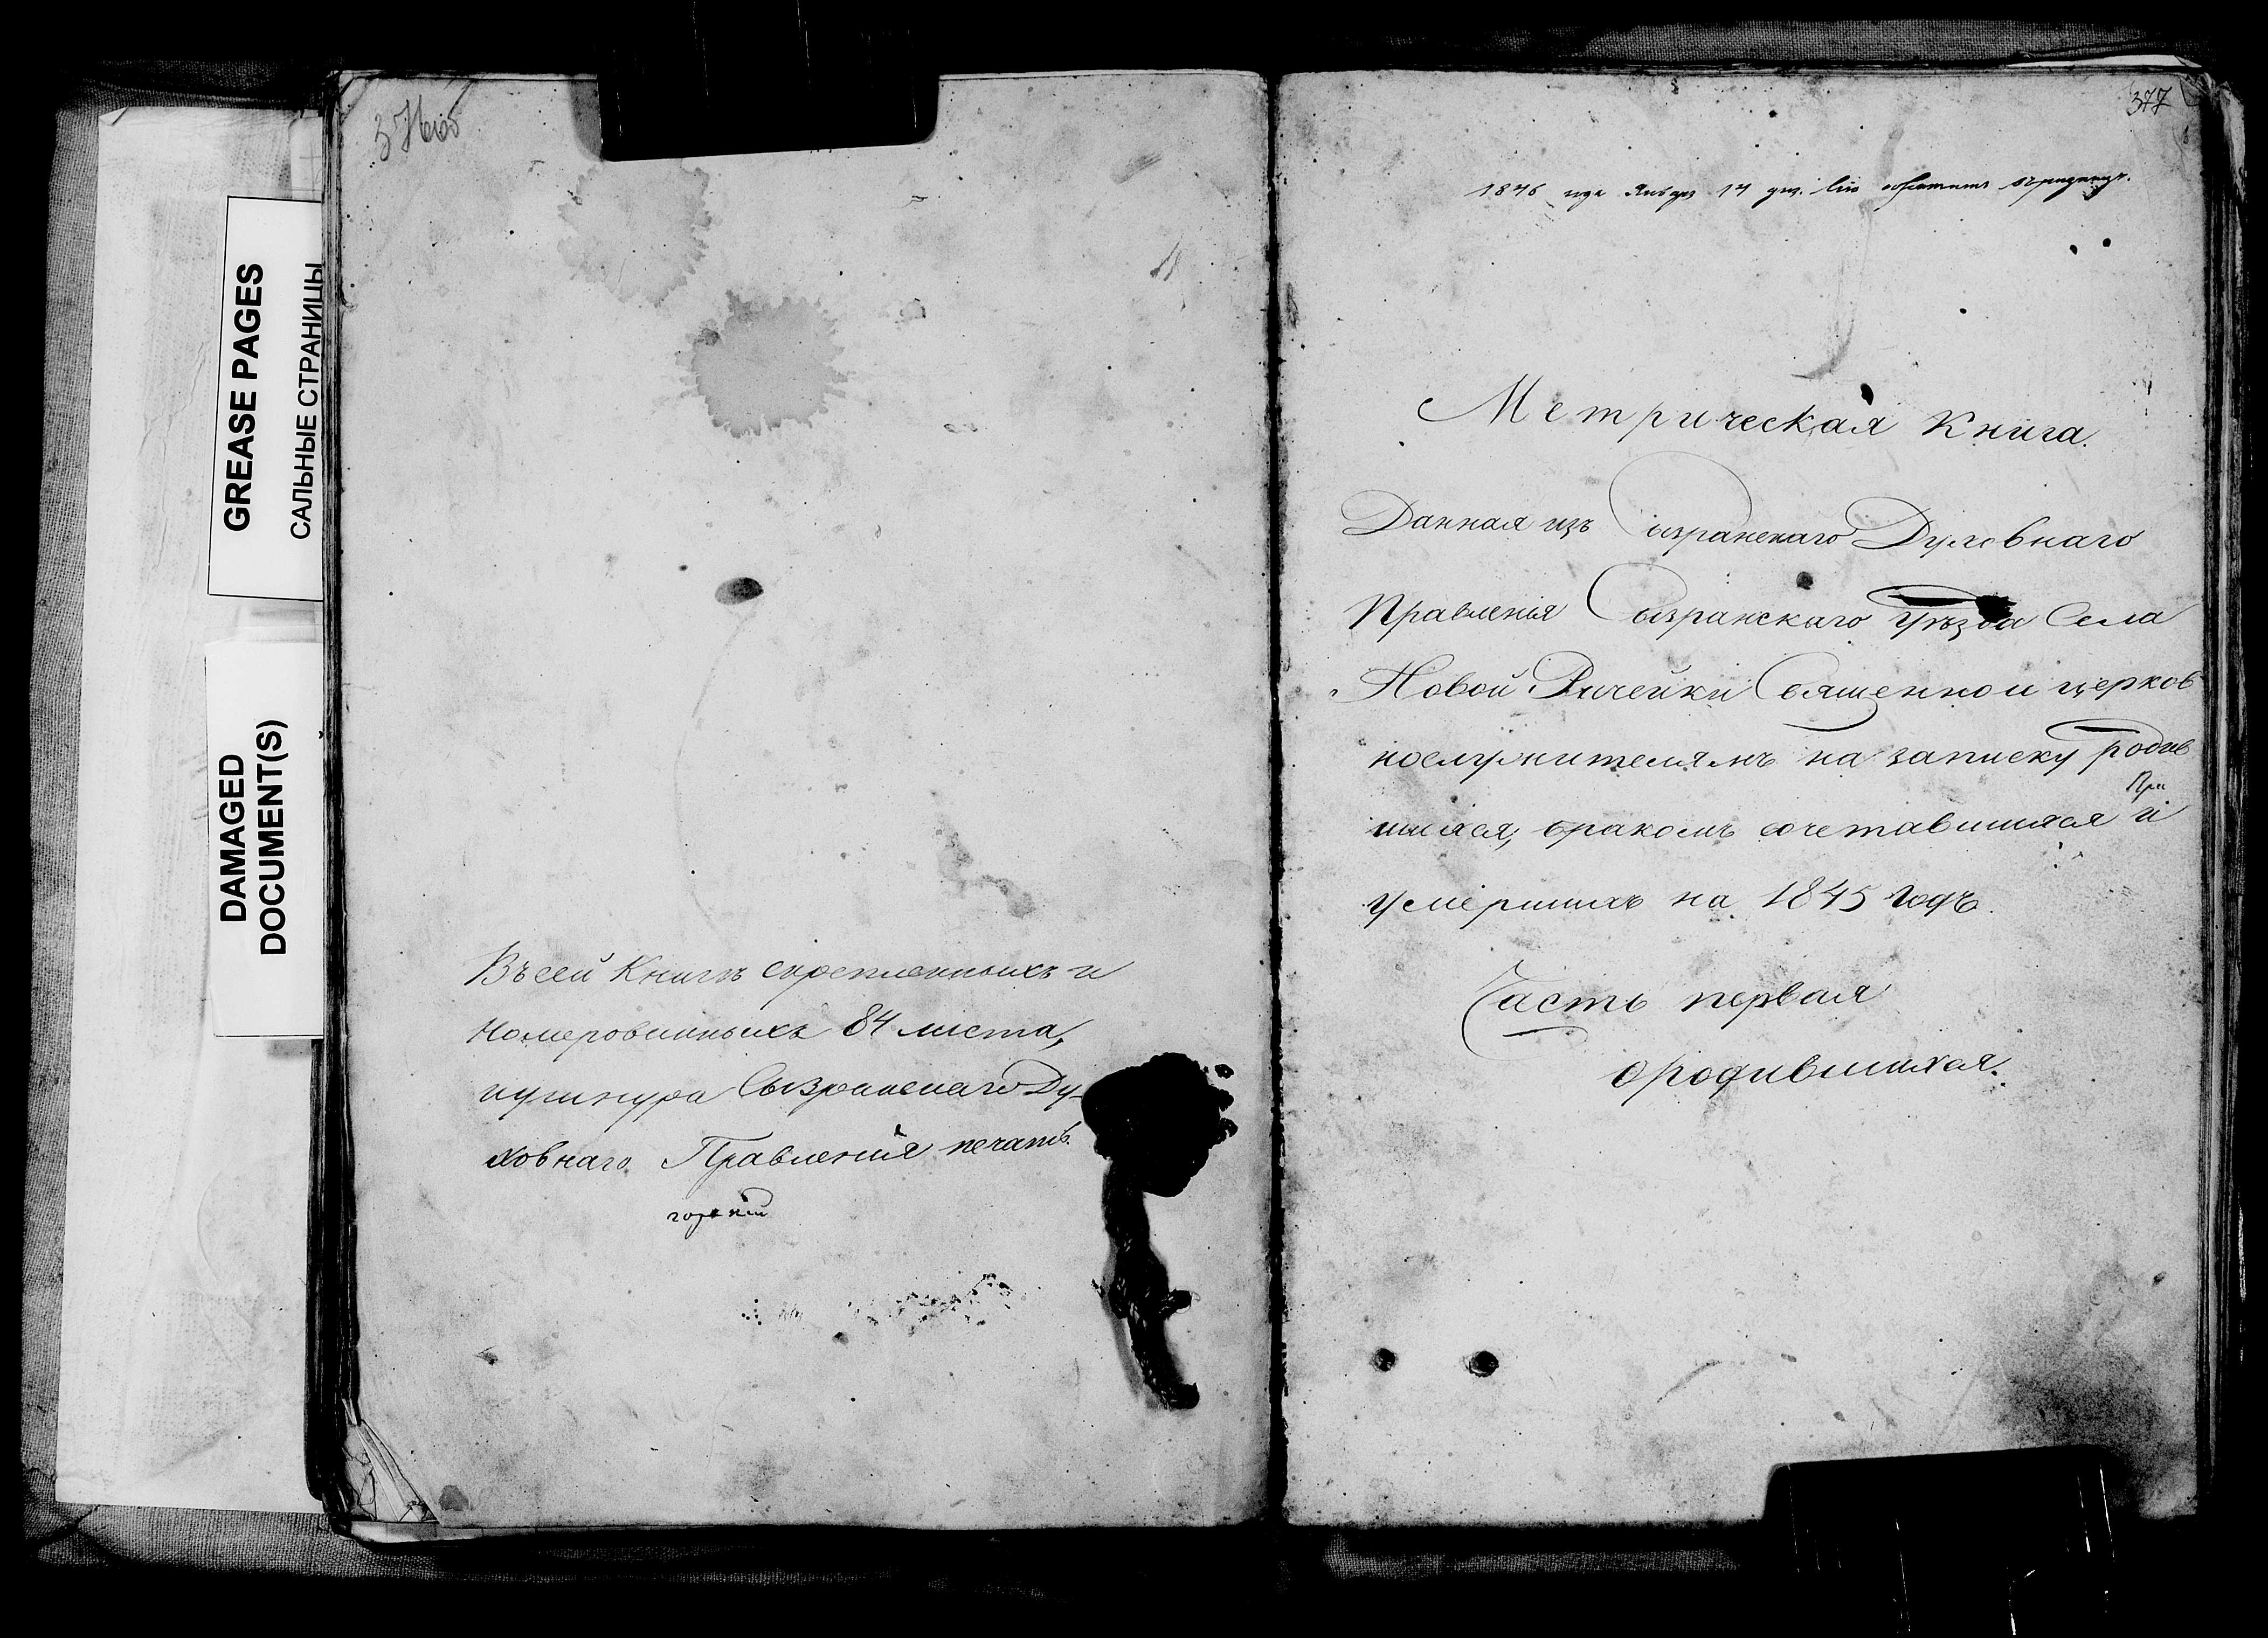 GREASE PAGES
САЛЬНЫЕ СТРАНИЦЫ
DAMAGED
DOCUMENT(S)
376об
Въ сей Книгѣ скрепленныхъ и
номерованныхъ 84 листа,
шунура Сызранскаго Ду-
ховнаго Правленія печать.
377
1846 года Января 14 дня.
Метрическая Книга.
Данная изъ Сызранскаго Духовнаго
Правленія Сызранскаго Уѣзда Села
Новой Рачейки Священно и церков
нослужителямъ на записку родив
шихся, бракомъ сочетавшихся и
умершихъ на 1845 Годъ.
Часть первая
о родившихся.